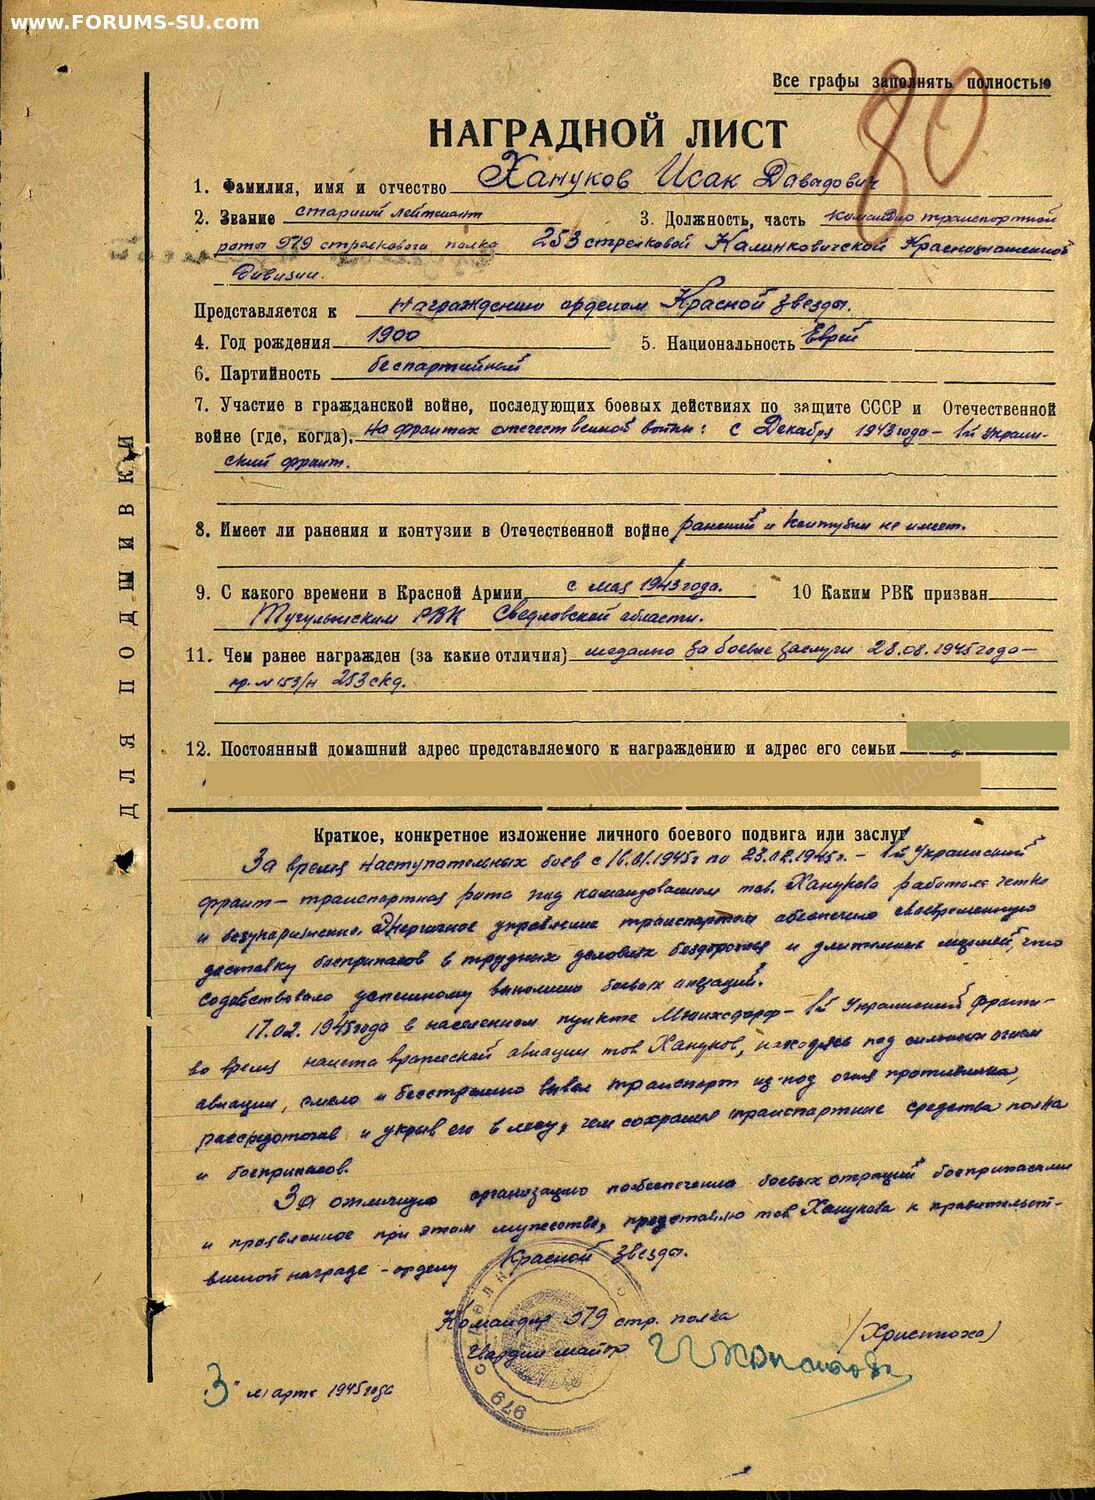 www.FORUMS-SU.com
80
Все графы заполнять полностью
НАГРАДНОЙ ЛИСТ
1. Фамилия, имя и отчество Хануков Исак Давидович
2. Звание старший лейтенант 3. Должность, часть командир транспортной
роты 979 стрелкового полка 253 стрелковой Калинковичской Краснознаменной
дивизии.
Представляется к награждению орденом Красной звезды.
4. Год рождения 1900 5. Национальность Еврей
6. Партийность беспартийный
7. Участие в гражданской войне, последующих боевых действиях по защите СССР и Отечественной
войне (где, когда) На фронтах отечественной войны: с Декабря 1943 года – 1й Украин-
ский фронт.
8. Имеет ли ранения и контузии в Отечественной войне ранений и контузии не имеет.
9. С какого времени в Красной Армии с мая 1943 года. 10 Каким РВК призван
Тугулымским РВК Свердловской области.
11. Чем ранее награжден (за какие отличия) медалью за боевые заслуги 28.08.1945 года –
пр. № 153/н 253 скд.
12. Постоянный домашний адрес представляемого к награждению и адрес его семьи
ДЛЯ ПОДШИВКИ
Краткое, конкретное изложение личного боевого подвига или заслуг
За время наступательных боев с 16.01.1945г по 23.02.1945г. – 1й Украинский
фронт – транспортная рота под командованием тов. Ханукова работала четко
и безукоризненно. Энергичное управление транспортом обеспечило своевременную
доставку боеприпасов в трудных условиях бездорожья и длительных маршей, что
содействовало успешному выполнению боевых операций.
17.02.1945 года в населенном пункте Мюнихсдорф – 1й Украинский фронт –
во время налета вражеской авиации тов Хануков, находясь под сильным огнем
авиации, смело и бесстрашно вывел транспорт из-под огня противника,
рассредоточив и укрыв его в лесу, чем сохранил транспортные средства полка
и боеприпасов.
За отличную организацию по обеспечению боевых операций боеприпасами
и проявленное при этом мужество, представляю тов Ханукова к правительст-
венной награде – ордену Красной звезды.
Командир 979 стр. полка
Гвардии майор (Христюха)
979
"3" марта 1945 года